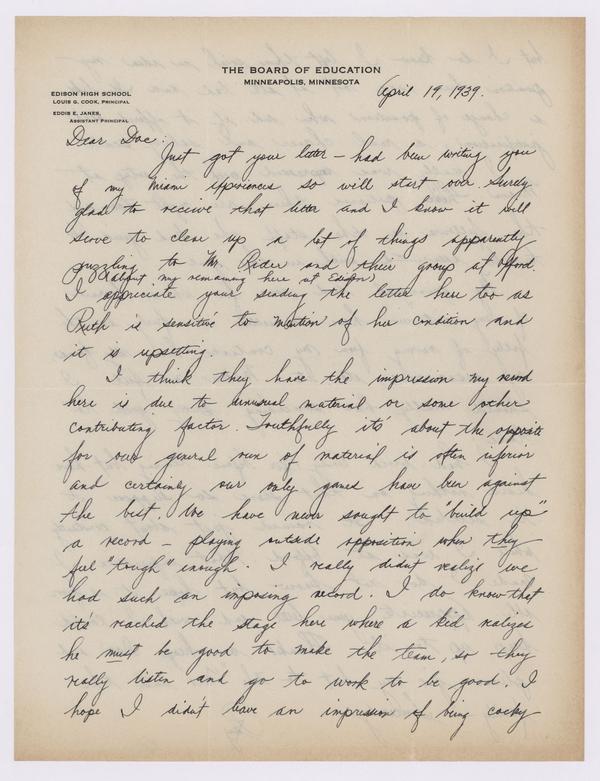 THE BOARD OF EDUCATION
MINNEAPOLIS, MINNESOTA
EDISON HIGH SCHOOL
LOUIS G. COOK, PRINCIPAL
EDDIS E. JANES,
ASSISTANT PRINCIPAL
April 19, 1939.
Dear Doc:
Just got your letter – had been writing you
of my Miami experiences so will start over. Surely
glad to receive that letter and I know it will
serve to clear up a lot of things apparently
puzzling to Mr. Rider and their group at Oxford.
(about my remaining here at Edison)
I appreciate your sending the letter here too as
Ruth is sensitive to mention of her condition and
it is upsetting.
I think they have the impression my record
here is due to unusual material or some other
contributing factor. Truthfully it's about the opposite
for our general run of material is often inferior
and certainly our only games have been against
the best. We have never sought to "build up"
a record – playing outside opposition when they
feel "tough" enough. I really didn't realize we
had such an imposing record. I do know that
it's reached the stage here where a kid realizes
he must be good to make the team, so they
really listen and go to work to be good. I
hope I didn't leave an impression of being cocky